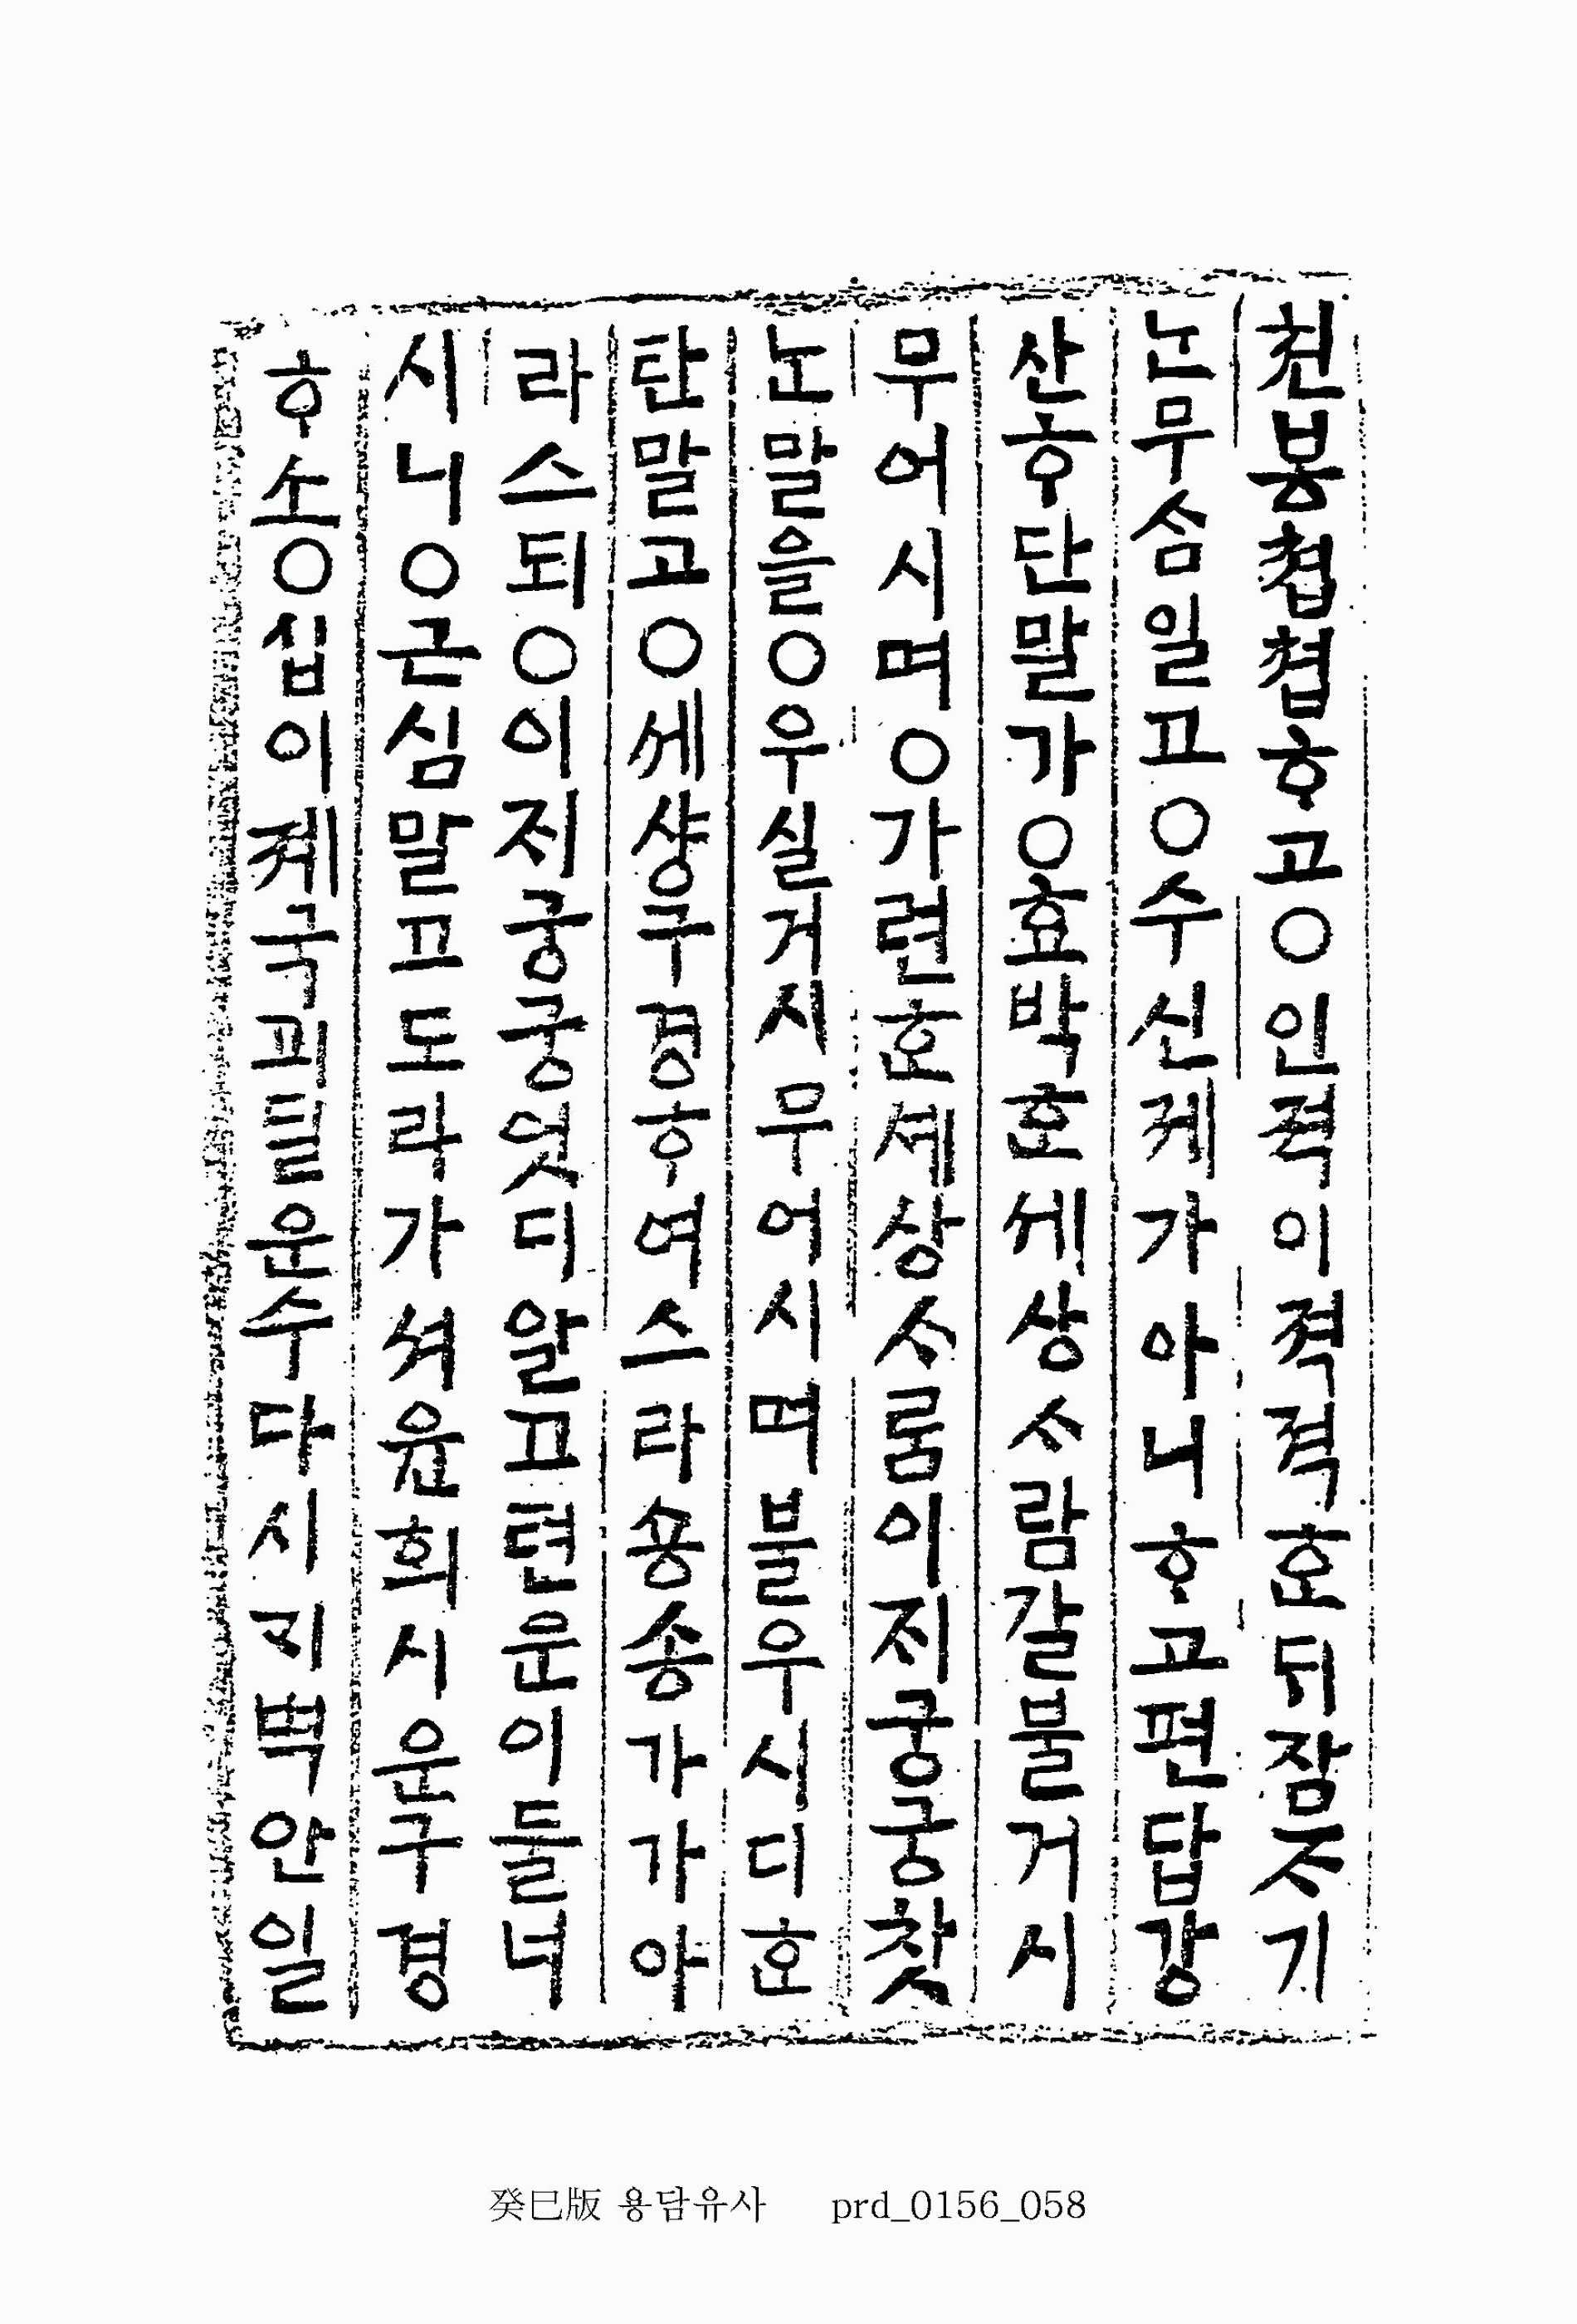 쳔봉쳡쳡ᄒᆞ고○인젹이젹젹ᄒᆞᆫ듸잠ᄌᆞ기
ᄂᆞᆫ무ᄉᆞᆷ일교○수신졔가아니ᄒᆞ고편답강
산ᄒᆞ단말가○효박ᄒᆞᆫ세상ᄉᆞ람갈불거시
무어시며○가련ᄒᆞᆫ셰상ᄉᆞᄅᆞᆷ이ᄌᆡ궁궁찻
ᄂᆞᆫ말을○우실거시무어시며불우시디ᄒᆞᆫ
탄말고○세샹구경ᄒᆞ여스라숑송가가아
라스되○이ᄌᆡ궁궁엇디알교텬운이둘녀
시니○근심말교도라가셔윤회시운구경
ᄒᆞ소○십이졔국괴딜운수다시ᄀᆡ벽안일
癸巳版 용담유사 prd_0156_058